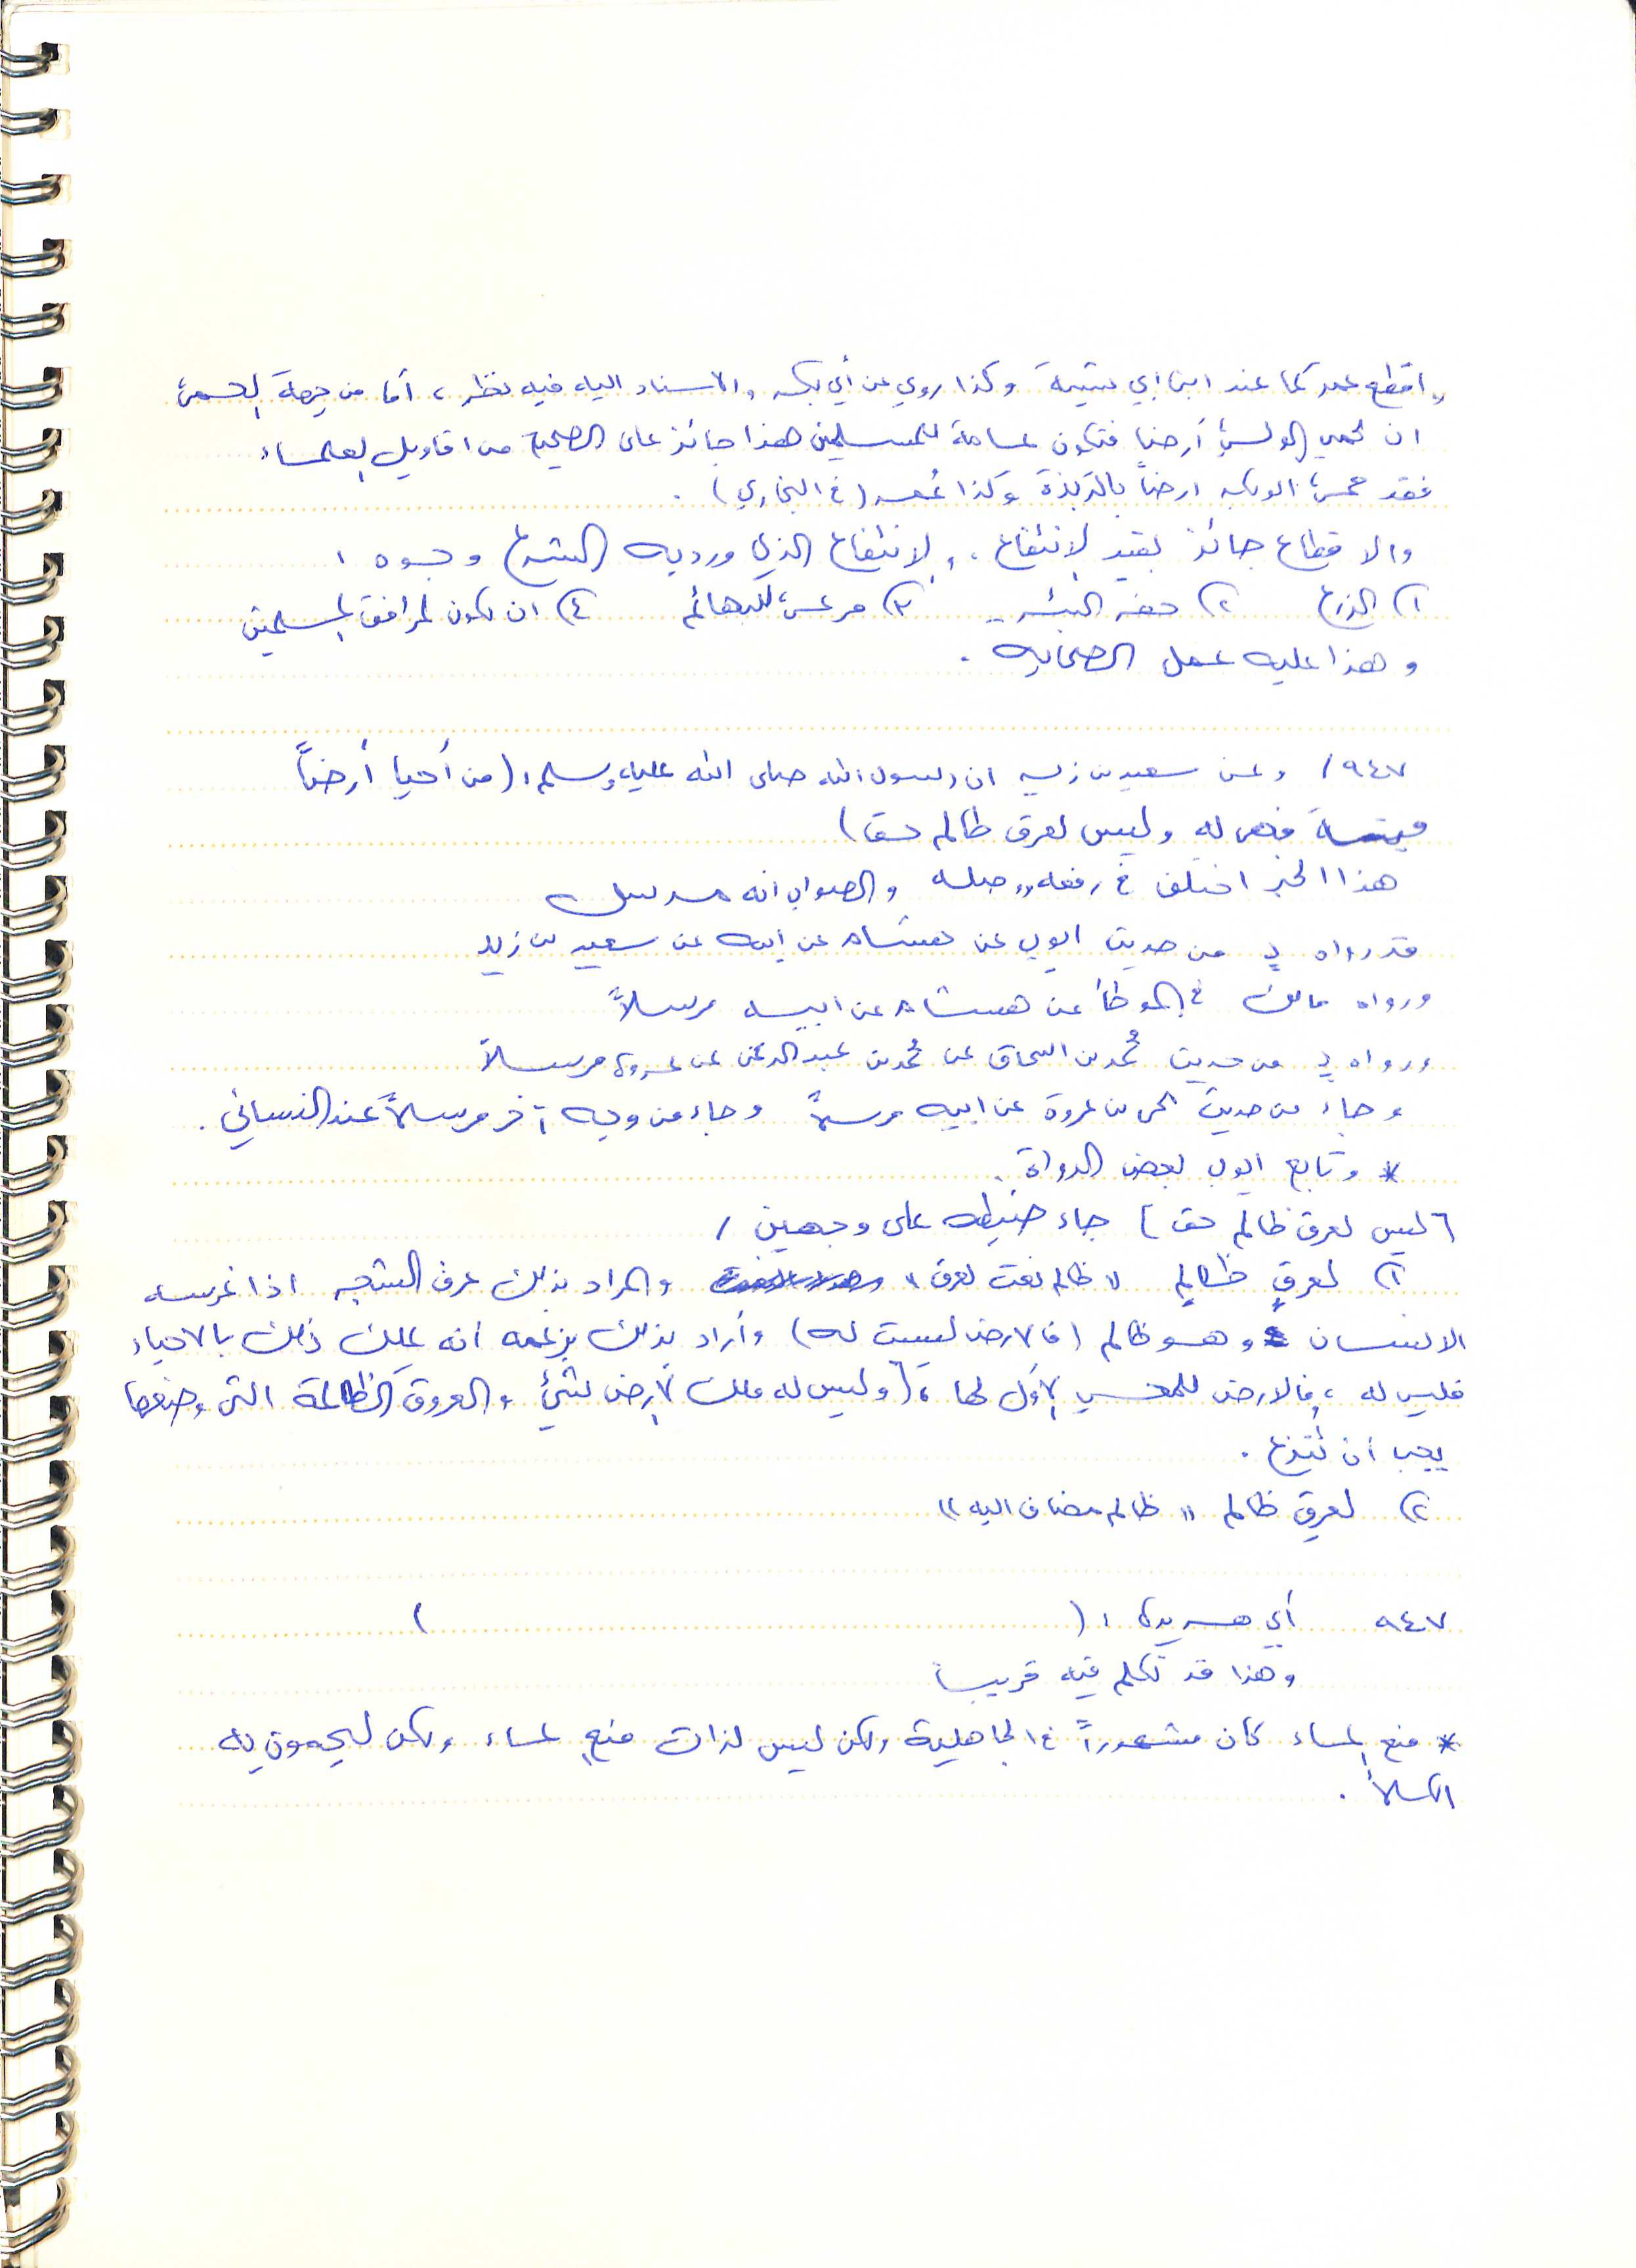 واقطع عمر كما عند ابن ابي شيبة وكذا روي عن أبي بكر والاسناد اليه فيه نظر ، أما من جهة الحمى
ان يحمي الوالي أرضاً فتكون عامة للمسلمين هذا جائز على الصحيح من اقاويل العلماء
فقد حمى ابو بكر ارضاً بالربذة وكذا عُمر (خ البخاري) .
والا قطاع جائز بقيد الانتفاع . والانتفاع الذي ورد به الشرع وجوه :
١) الزرع ٢) حفر البئر ٣) مرعى للبهائم ٤) ان يكون لمرافق المسلمين
وهذا عليه عمل الصحابه .
٩٤٧/ وعن سعيد بن زيد ان رسول الله صلى الله عليه وسلم : (من أحيا أرضاً
ميتة فهي له وليس لعرق ظالم حق)
هذا الخبر اختلف في رفعه ووصله والصواب انه مرسل
قد رواه د من حديث ايوب عن هشام عن ابيه عن سعيد بن زيد
ورواه مالك في الموطأ عن هشام عن ابيه مرسلاً
ورواه د من حديث مُحمد بن اسحاق عن مُحمد بن عبدالرحمن عن عروة مرسلاً
وجاء من حديث يحي بن عروة عن ابيه مرسلاً وجاء من وجه آخر مرسلاً عند النسائي .
* وتابع ايوب بعض الرواة .
[ليس لعرق ظالم حق] جاء ضبطه على وجهين /
١) لعرقٍ ظالمٍ " ظالم نعت لعرق " والمراد بذلك عرق الشجر اذا غرسه
الانسان وهو ظالم (فالارض ليست له) وأراد بذلك بزعمه أنه يملك ذلك بالاحياء
فليس له ، فالارض للمحيي الأول لها ، (وليس له ملك الارض بشئ والعروق الظالمة التي وضعها
يجب ان تنزع .
٢) لعرق ظالم " ظالم مضاف اليه "
٩٤٧ أبي هريرة : ( )
وهذا قد تكلم فيه قريباً
* منع الماء كان مشهوراً في الجاهلية ولكن ليس لذات منع الماء ولكن ليحمون به
الكلأ .